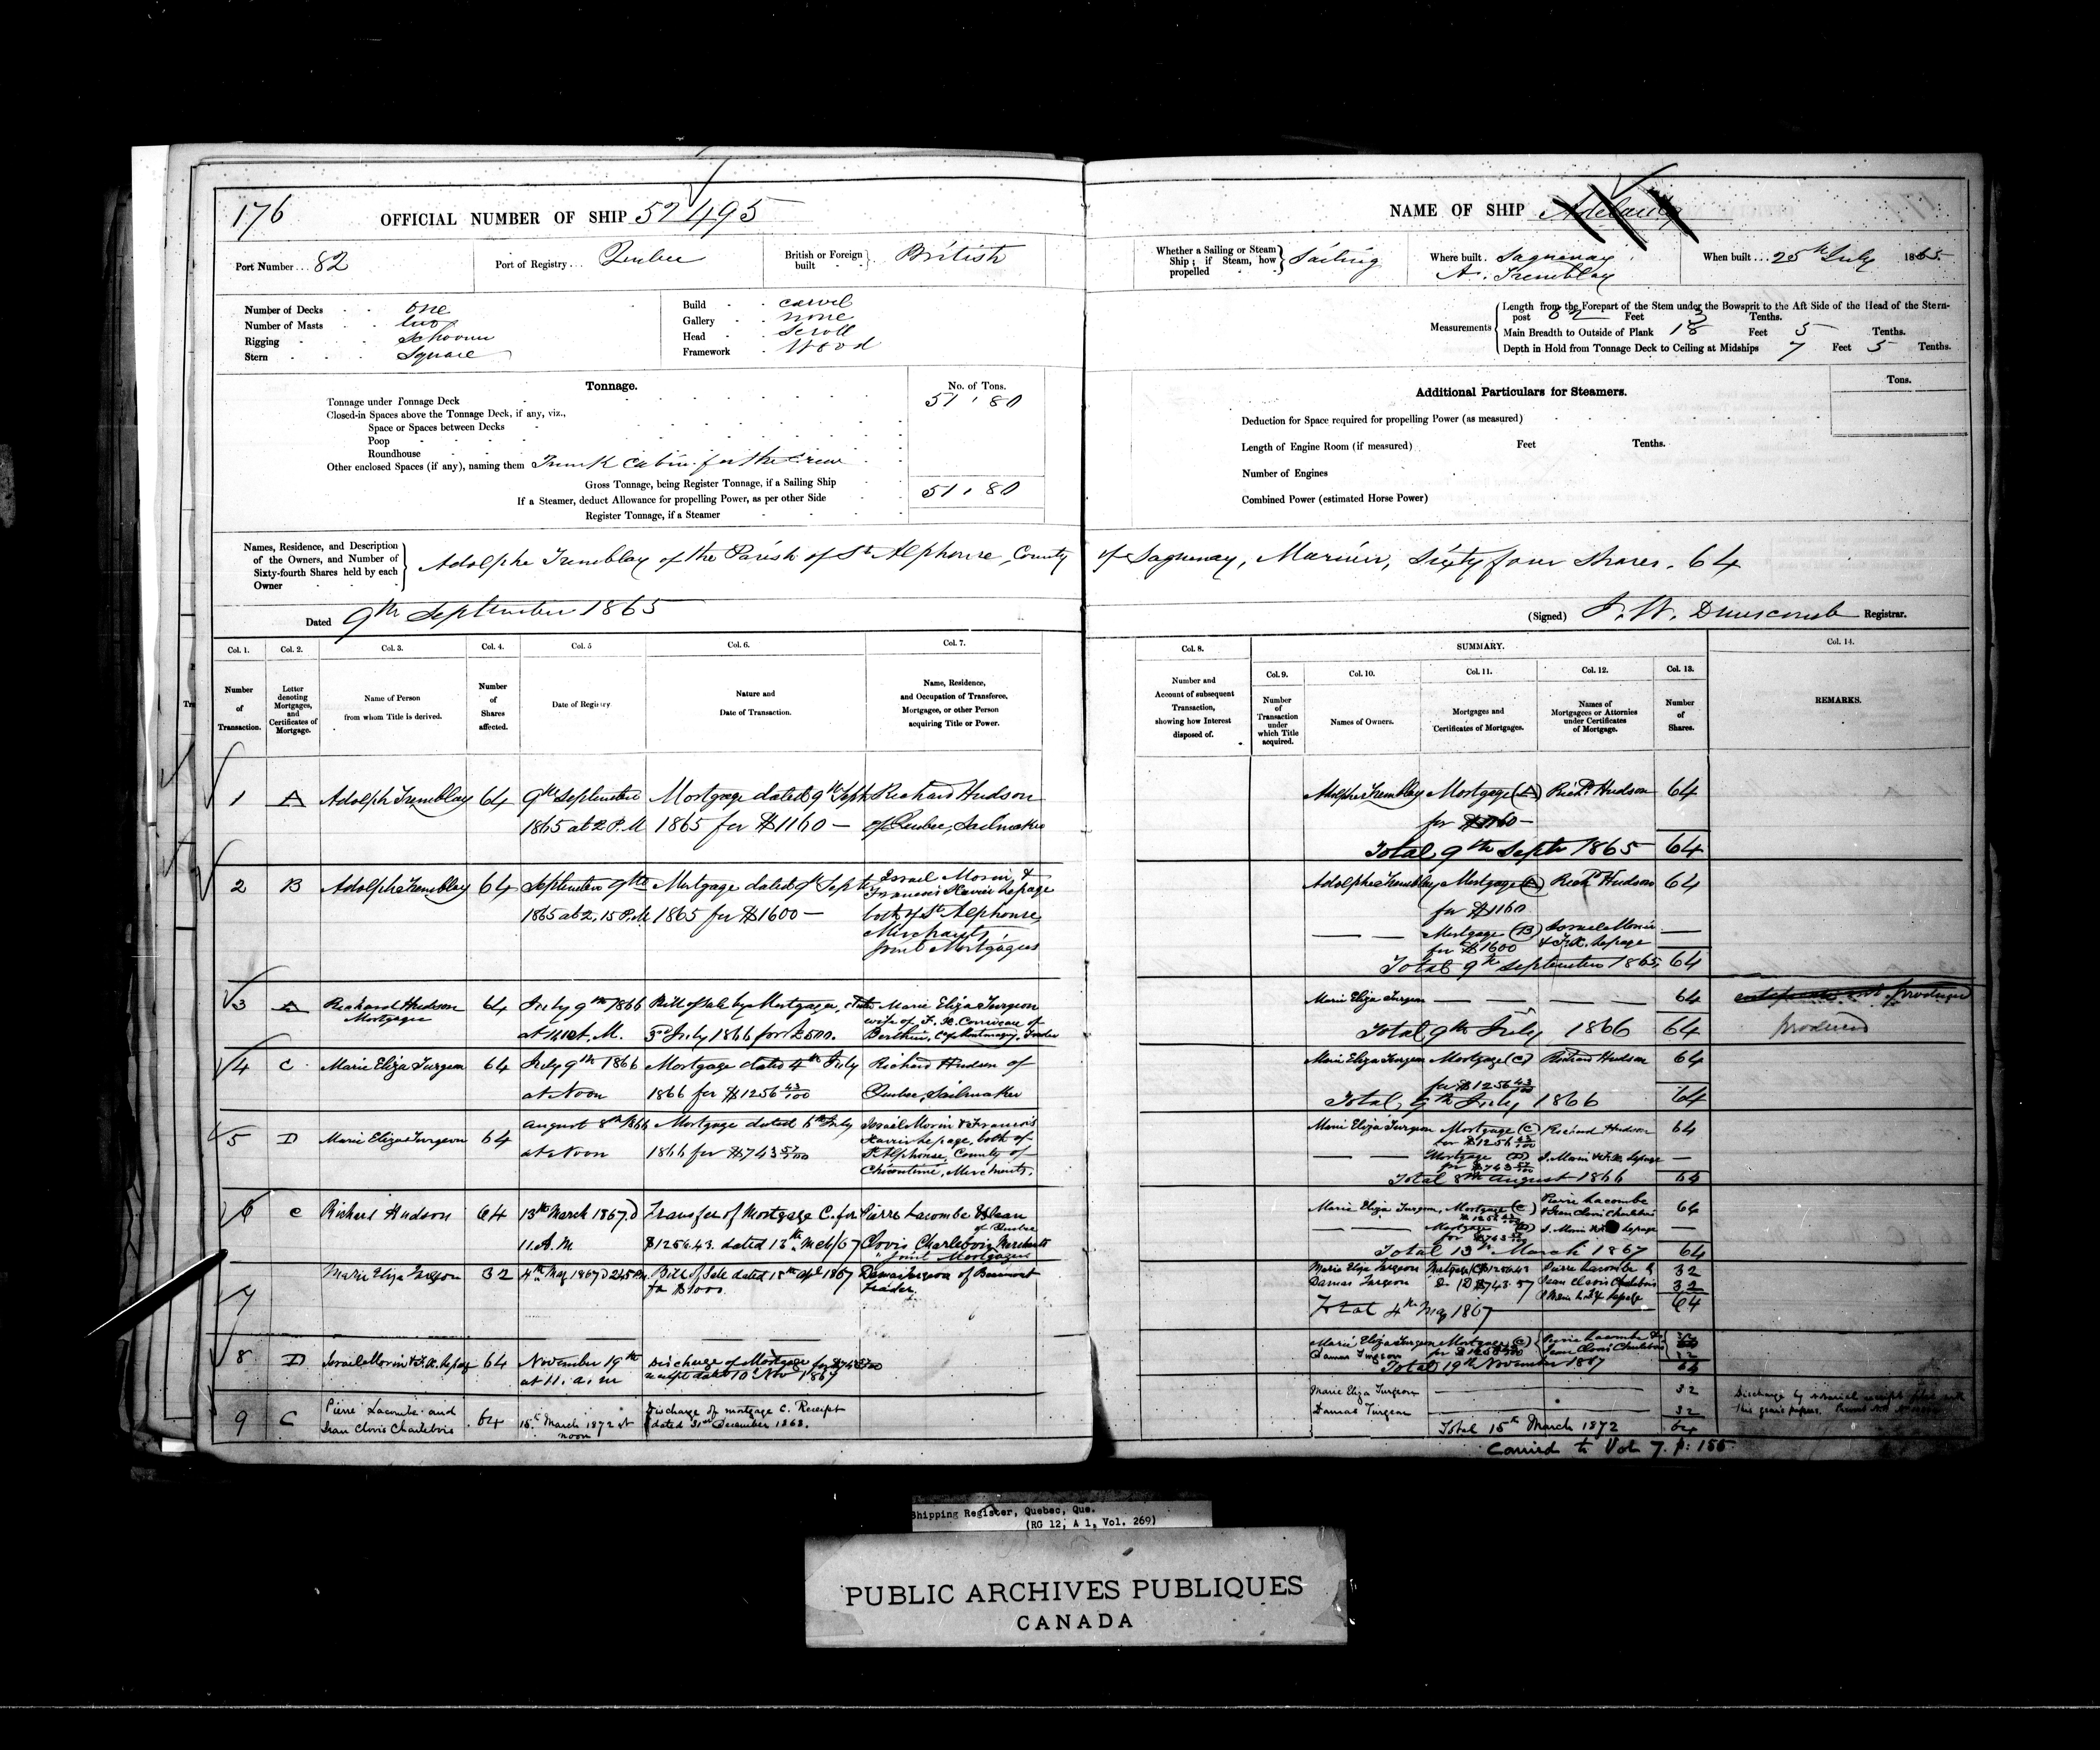 176
OFFICIAL NUMBER OF SHIP 52495
Port Number... 82
Port of Registry... Quebec
British or Foreign built British
Number of Decks one
Number of Masts two
Rigging Schooner
Stern Square
Build carvel
Gallery none
Head Scroll
Framework Wood
Tonnage.
No. of Tons.
Tonnage under Tonnage Deck 51.80
Closed-in Spaces above the Tonnage Deck, if any, viz.,
Space or Spaces between Decks
Poop
Roundhouse
Other enclosed Spaces (if any), naming them Trunk cabin for the Crew
Gross Tonnage, being Register Tonnage, if a Sailing Ship 51.80
If a Steamer, deduct Allowance for propelling Power, as per other Side
Register Tonnage, if a Steamer
NAME OF SHIP
Whether a Sailing or Steam Ship; if Steam, how propelled Sailing
Where built Saguenay
A. Tremblay
When built... 25th July 1865
Measurements
Length from the Forepart of the Stem under the Bowsprit to the Aft Side of the Head of the Stern-
post Feet 3 Tenths.
Main Breadth to Outside of Plank 18 Feet 5 Tenths.
Depth in Hold from Tonnage Deck to Ceiling at Midships 7 Feet 5 Tenths.
Additional Particulars for Steamers.
Tons.
Deduction for Space required for propelling Power (as measured)
Length of Engine Room (if measured) Feet Tenths.
Number of Engines
Combined Power (estimated Horse Power)
Names, Residence, and Description
of the Owners, and Number of
Sixty-fourth Shares held by each
Owner
Adolphe Tremblay of the Parish of St Alphonse, County of Saguenay, Mariner, Sixty four Shares. 64
Dated 9th September 1865
(Signed) J. W. Dunscomb Registrar.
Col. 1. Col. 2. Col. 3. Col. 4. Col. 5 Col. 6. Col. 7.
Number of Transaction.
Letter denoting Mortgages, and Certificates of Mortgage.
Name of Person from whom Title is derived.
Number of Shares affected.
Date of Registry.
Nature and Date of Transaction.
Name, Residence, and Occupation of Transferee, Mortgagee, or other Person acquiring Title or Power.
Col. 8.
Number and Account of subsequent Transaction, showing how Interest disposed of.
SUMMARY.
Col. 9. Col. 10. Col. 11. Col. 12. Col. 13. Col. 14.
Number of Transaction under which Title acquired.
Names of Owners.
Mortgages and Certificates of Mortgages.
Names of Mortgagees or Attornies under Certificates of Mortgage.
Number of Shares.
REMARKS.
1 A Adolphe Tremblay 64 9th September Mortgage dated 9th Sept Richard Hudson
1865 at 2 P.M 1865 for $1160 — of Quebec, Sailmaker
Adolphe Tremblay Mortgage (A) Richd Hudson 64
for $1160 —
Total 9th Septr 1865 64
2 B Adolphe Tremblay 64 September 9th Mortgage dated 9th Sept Israel Morin, &
Francois Xavier Lepage
1865 at 2.15 P.M. 1865 for $1600 — both of St Alphonse,
Merchants,
Joint Mortgagees
Adolphe Tremblay Mortgage (A) Richd Hudson 64
for $1160
— — Mortgage (B) Israel Morin —
for $1600 & F.X. Lepage
Total 9th September 1865, 64
3 A Richard Hudson 64 July 9th 1866 Bill of Sale by Mortgagee, Marie Eliza Turgeon
Mortgagee wife of F. X. of
at A.M. 3rd July 1866 for Berthier, Trader
Marie Eliza Turgeon — — — — 64
Total 9th July 1866 64
produced
4 C Marie Eliza Turgeon 64 July 9th 1866 Mortgage dated 4th July Richard Hudson of
at Noon 1866 for $1256 43/100 Quebec, Sailmaker
Marie Eliza Turgeon Mortgage (C) Richard Hudson 64
for $1256 43/100
Total, 9th July 1866 64
5 D Marie Eliza Turgeon 64 August 8th 1866 Mortgage dated 6th July Israel Morin & Francois
Xavier Lepage, both of
at Noon 1866 for $743 57/100 St Alphonse, County of
Chicoutimi, Merchants.
Marie Eliza Turgeon Mortgage (C) Richard Hudson 64
for $1256 43/100
— — Mortgage (D) I. Morin & F.X. Lepage —
for $743 57/100
Total 8th August 1866 64
6 C Richard Hudson 64 13th March 1867 Transfer of Mortgage C. for Pierre Lacombe & Jean
of Quebec
11. A.M $1256.43. dated 13th Mch/67 Clovis Charlebois Merchants
Joint Mortgagees
Marie Eliza Turgeon, Mortgage (C) Pierre Lacombe 64
$1256 43/100 & Jean Clovis Charlebois
— — Mortgage (D) I. Morin & F.X. Lepage —
for $743 57/100
Total 13th March 1867 64
7 Marie Eliza Turgeon 32 4th May 1867 2.45 P.M. Bill of Sale dated 15th Apl 1867 Damas Turgeon of Beaumont
for $1000. Trader.
Marie Eliza Turgeon Mortgage (C) $1256.43 Pierre Lacombe & 32
Damas Turgeon Do (D) $743.57 Jean Clovis Charlebois 32
64
Total 4th May 1867
8 D Israel Morin & F.X. Lepage 64 November 19th Discharge of Mortgage for $743 57/100
at 11. a. m receipt dated 10 Nov 1867
Marie Eliza Turgeon Mortgage (C) Pierre Lacombe &
Damas Turgeon for $1256 43/100 Jean Clovis Charlebois 32
Total 19th November 1867 64
9 C Pierre Lacombe and 64 15th March 1872 at Discharge of mortgage C. Receipt
Jean Clovis Charlebois noon dated 31st December 1868.
Marie Eliza Turgeon 32
Damas Turgeon 32
Total 15th March 1872 64
Discharge by notarial receipt filed with
this year's papers.
Carried to Vol 7. p: 155
Shipping Register, Quebec, Que.
(RG 12, A 1, Vol. 269)
PUBLIC ARCHIVES PUBLIQUES
CANADA